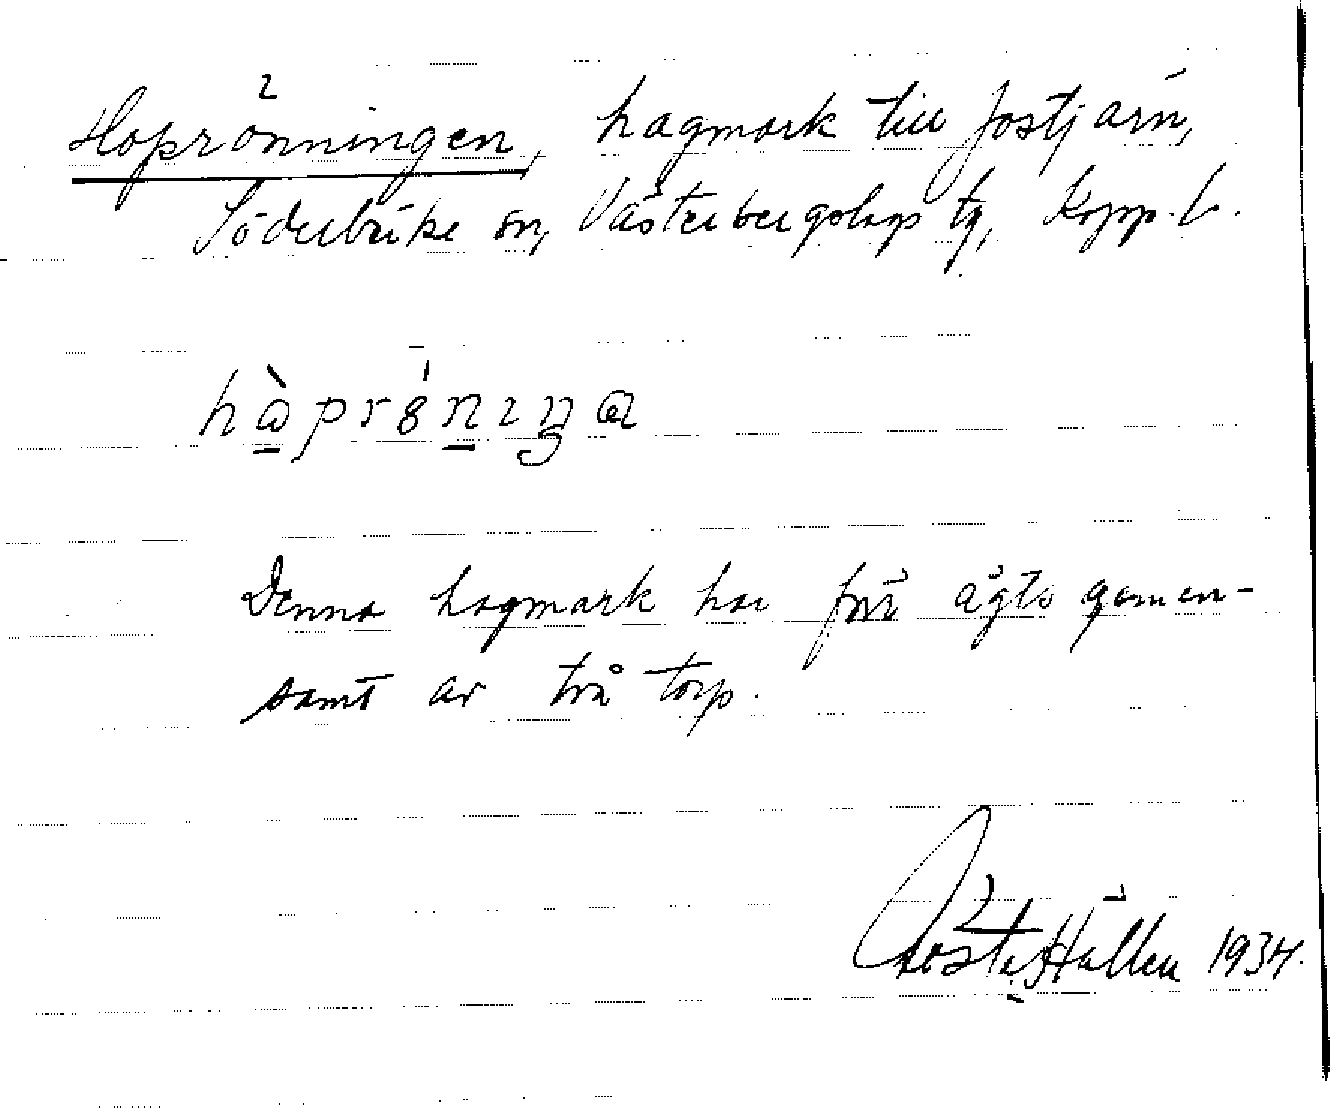 Hoprönningen, hagmark till Jostjärn,
Söderbärke sn, Västerbergslags tg, Kopp. l.
Denna hagmark har förr ägts gemen-
samt av två torp.
Gösta Hällen 1934.